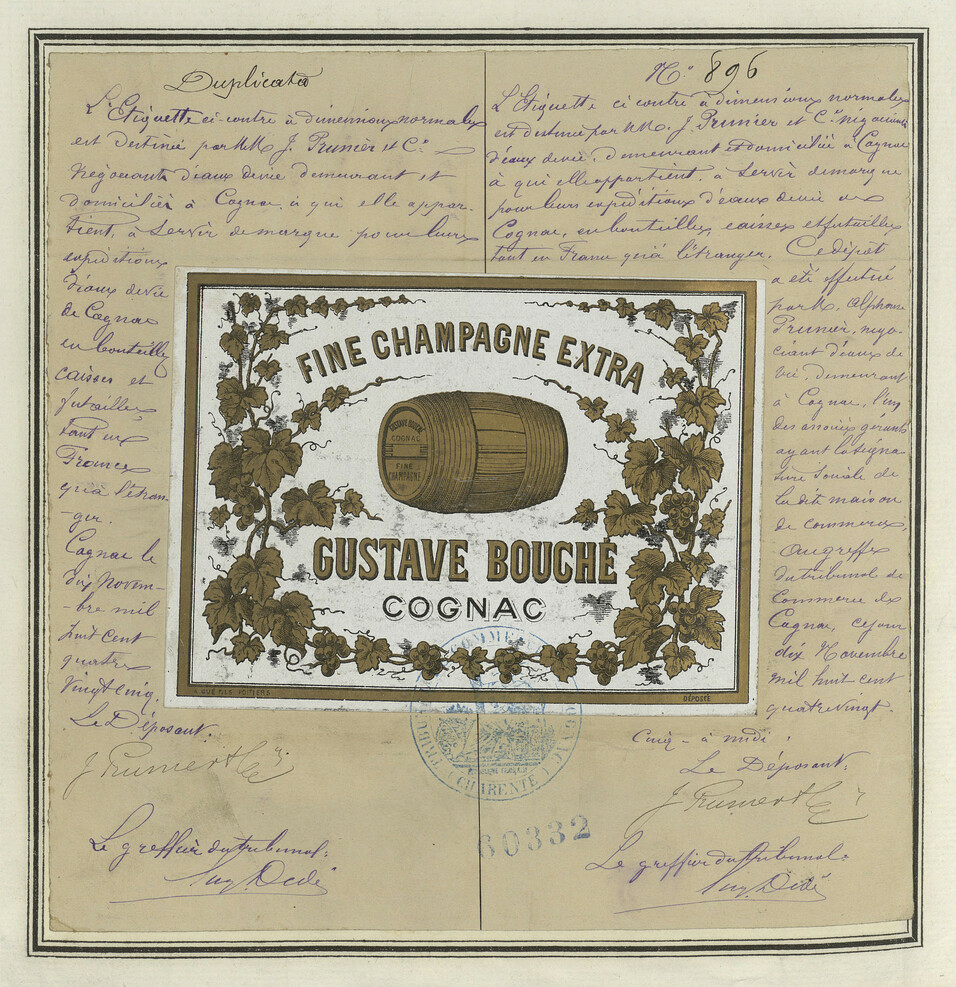 Duplicata
L'Etiquette ci-contre à dimensions normales
est destinée par MM J. Prunier et Cie
Négociants d'eaux de vie demeurant et
domiciliés à Cognac, à qui elle appar-
tient, à servir de marque pour leurs
expéditions
d'eaux de vie
de Cognac
en bouteilles
caisses et
futailles
tant en
France
qu'à l'étran-
-ger.
Cognac le
dix Novem-
-bre mil
huit cent
quatre
Vingt Cinq.
Le Déposant.
J. Prunier & Cie
Le greffier du tribunal:
Aug. Dedé
N.o 896
L'Etiquette ci contre à dimensions normales
est destinée par MM. J. Prunier et Cie négociants
d'eaux de vie, demeurant et domiciliés à Cognac
à qui elle appartient, à servir de marque
pour leurs expéditions d'eaux de vie de
Cognac, en bouteilles, caisses et futailles
tant en France qu'à l'étranger. Ce dépôt
a été effectué
par M. Alphonse
Prunier, négo-
ciant d'eaux de
vie, demeurant
à Cognac, l'un
des associés gérants
ayant la signa
ture sociale de
la dite maison
de commerce,
au greffe
du tribunal de
Commerce de
Cognac, ce jour
dix Novembre
mil huit cent
quatre vingt.
Cinq - à midi.
Le Déposant:
J. Prunier & Cie
Le greffier du tribunal:
Aug. Dedé
FINE CHAMPAGNE EXTRA
GUSTAVE BOUCHE
COGNAC
FINE
CHAMPAGNE
GUSTAVE BOUCHE
COGNAC
POITIERS
DÉPOSÉE
TRIBUNAL DE COMMERCE
COGNAC
(CHARENTE)
60332